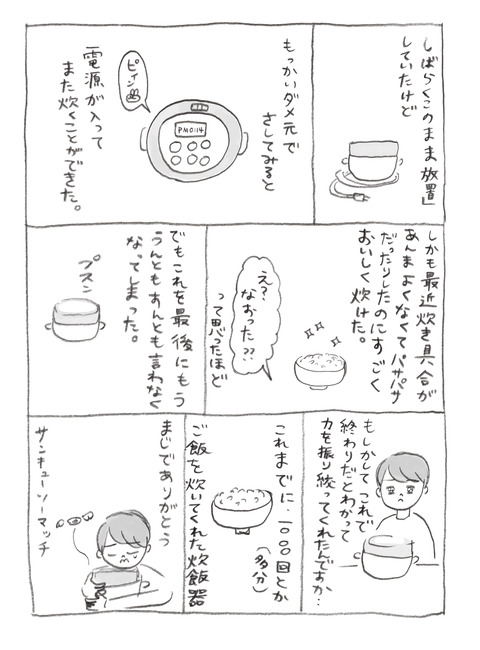 しばらくこのまま放置
していたけど
もっかいダメ元で
さしてみると
PM0:14
ピィン
電源が入って
また炊くことができた。
しかも最近炊き具合が
あんまよくなくてパサパサ
だったりしたのにすごく
おいしく炊けた。
え？
なおった??
って思ったほど
でもこれを最後にもう
うんともすんとも言わなく
なってしまった。
プスン
もしかしてこれで
終わりだとわかって
力を振り絞ってくれたんですか…
これまでに一〇〇〇回とか
(多分)
ご飯を炊いてくれた炊飯器
まじでありがとう
サンキューソーマッチ